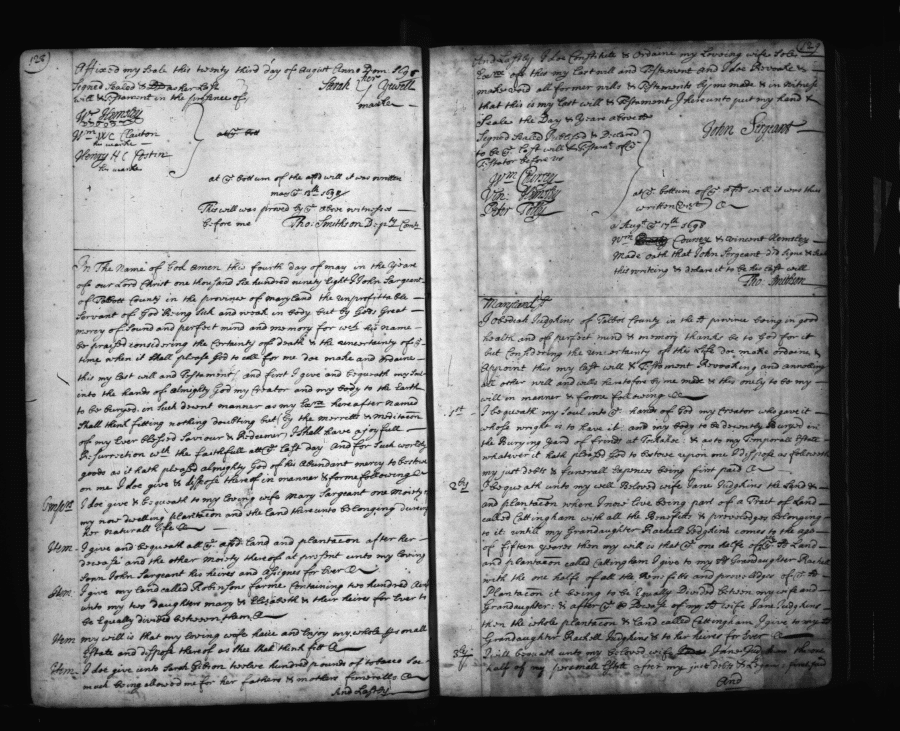 128
Affixed my seale this twenty third day of August Anno Dom. 169
Signed Sealed & as her Last Sarah her Jewell
will & Testament in the presence of marke
Wm Hemsley
Wm WC Clauton at ye bott
his marke
Henry H C Costin
his marke
at ye bottom of the affd will it was written
may ye 18th 1698
This will was proved by ye above witnesses
before me Tho: Smithson D: pty Com
In The Name of God amen this fourth day of may in the yeare
of our Lord Christ one thousand six hundred ninety eight I John Sargeant
of Talbott County in the province of maryland the unprofittable
Servant of God being sick and weak in body but by Gods Great
mercy of sound and perfect mind and memory for wch his name
be praised considering the Certainty of death & the uncertainty of ye
time when it shall please God to call for me doe make and ordaine
this my last will and Testament and first I give and bequeath my soul
into the hands of almighty God my Creator and my body to the Earth
to be buryed in such decent manner as my hereafter named
shall think fitting nothing doubting but by the merretts & meditacon
of my Ever blessed Saviour & Redeemer I shall have a joyfull
Resurrection wth the faithfull att ye last day And for such worldly
goods as it hath pleased almighty God of his abundant mercy to bestow
on me I doe give & dispose thereof in manner & forme following
I doe give & bequeath to my loving wife Mary Sargeant one moiety
my now dwelling plantacon and the land there unto belonging during
her naturall life &
Item I give and bequeath all ye affd land and plantacon after her
decease and the other moiety thereof at present unto my loving
Sonn John Sargeant his heires and assignes for Ever &
Item I give my land called Robinsons farme containing two hundred
unto my two daughters mary & Elizabeth & their heires for Ever to
be Equally divided between them &
Item my will is that my loving wife have and Enjoy my whole personall
Estate and dispose thereof as shee shall think fitt &
Item I doe give unto Sarah twelve hundred pounds of tobacco Soe
much being allowed me for her fathers & mothers funeralls &
And Lastly
129
And Lastly I doe Constitute & Ordaine my Loveing wife sole
of this my last will and Testament And I doe Revoake &
make void all former wills & Testaments by me made & in witness
that this is my last will & Testament I here unto put my hand &
Seale the Day & yeare above sd
Signed Sealed Publised & Declared John Sergeant
to be ye last will & Testamt of ye
Testator before us
Wm Coursey
Vin: Hemsley
Peter at ye bottom of ye affd will it was thus
written vizt &
Augt ye 17th 1698
Wm Coursey & Vincent Hemsley
Made oath that John Sergeant did signe &
this writing & declare it to be his last will
Tho: Smithson
Maryland ss
I Obediah Judgkins of Talbot County in the sd province being in good
health and of perfect mind & memory thanks be to God for it
but Considering the uncertainty of this Life doe make ordaine &
Appoint this my last will & Testament Revoaking and annulling
all other will and wills heretofore by me made & this only to be my
will in manner & forme following &
1st I bequeath my Soul into ye hands of God my Creator who gave it
whose wright is to have it: and my body to be decently Buryed in
the Burying yard of freinds at Tuckahoe: & as to my Temporall Estate
whatever it hath pleased God to bestow upon me I dispose as followeth
my just debts & funerall Expences being first paid &
2dly I bequeath unto my well beloved wife Jane Judgkins the Land &
and plantacon where I now live being part of a Tract of Land
called Cottingham with all the Benefitts & priveledges belonging
to it: untill my Grandaughter Rachell Judgkins comes to ye age
of fifteen yeares then my will is that ye one halfe of ye sd Land
and plantacon called Cottingham I give to my sd Grandaughter Rachell
with the one halfe of all the Benifitts and priviledges of ye sd
Plantacon it being to be Equally Divided between my wife and
Grandaughter: & after ye Decease of my sd wife Jane Judgkins
then the whole plantacon & land called Cottingham I give to my sd
Grandaughter Rachell Judgkins & to her heires for Ever &
3dly I will bequeath unto my beloved wife Jane Judgkins the one
half of my personall Estate after my just debts & Legacies first paid
And